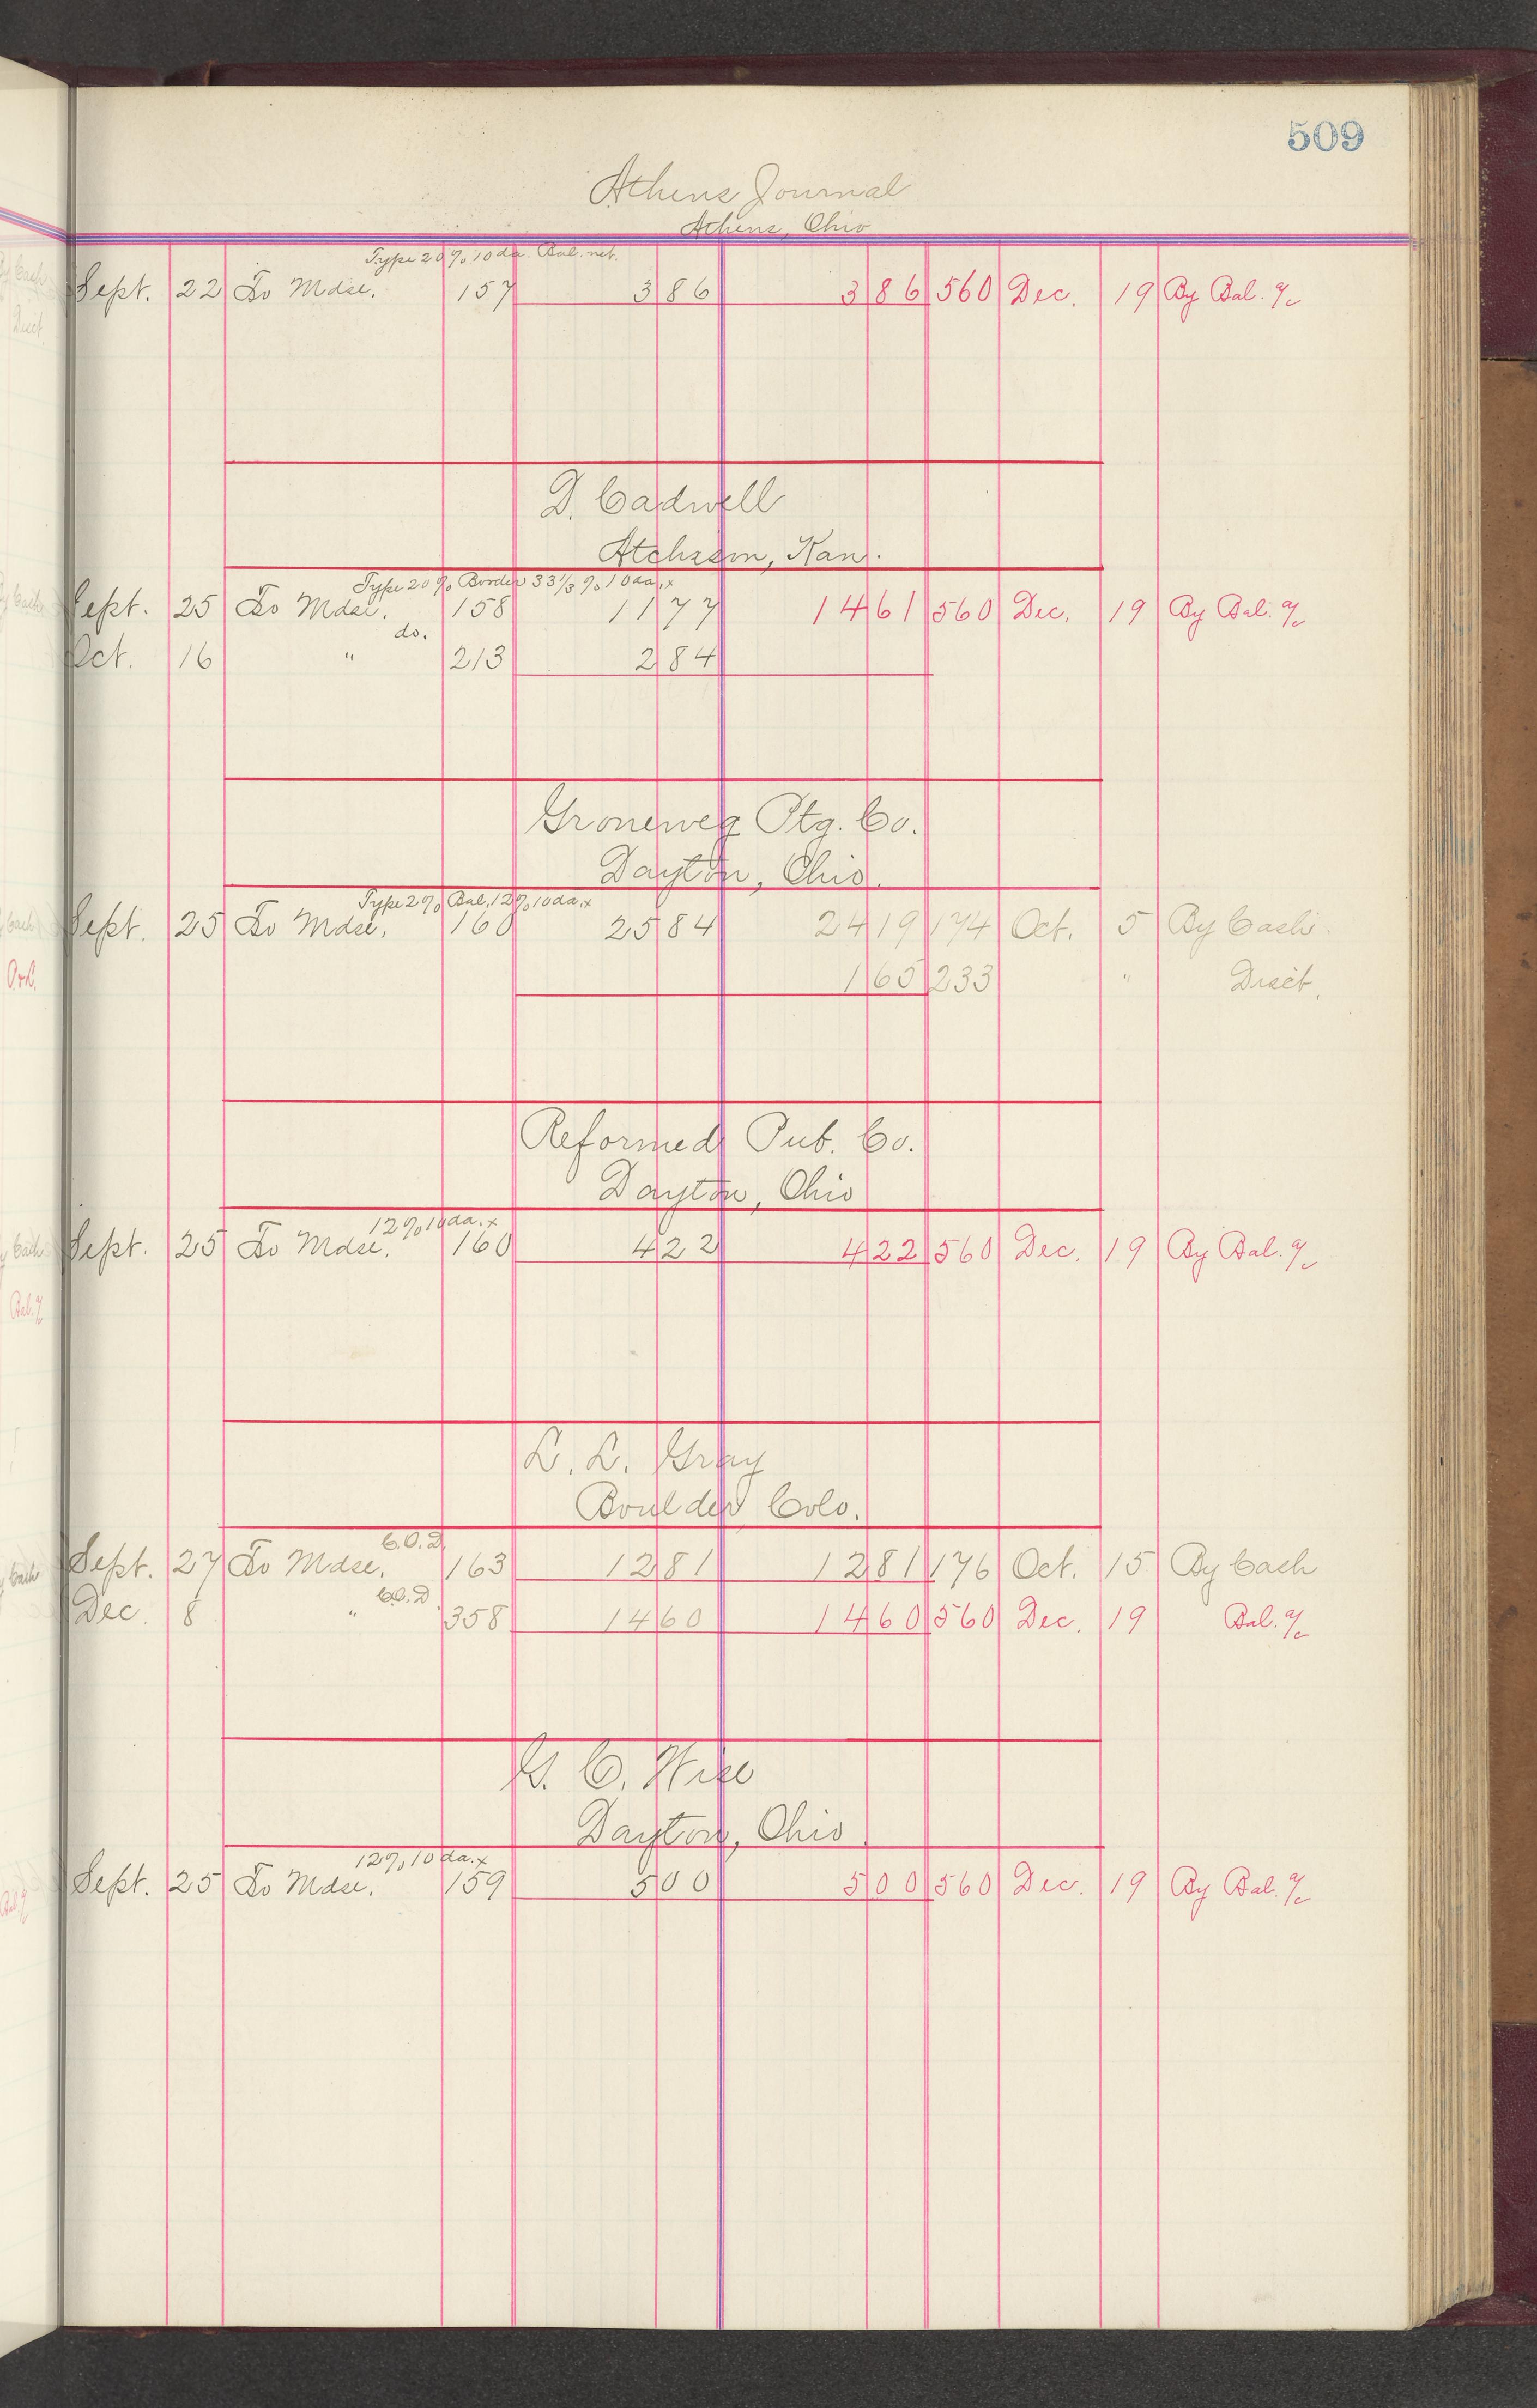 509
Athens Journal
Athens, Ohio
Type 20% 10 da. Bal. net.
Sept. 22 To Mdse. 157 3 86 3 86 560 Dec. 19 By Bal. a/c
D. Cadwell
Atchison, Kan.
Type 20% Border 33 1/3 % 10 da. x
Sept. 25 To Mdse. 158 11 77 14 61 560 Dec. 19 By Bal. a/c
do.
Oct. 16 " 213 2 84
Groneweg Ptg. Co.
Dayton, Ohio.
Type 2% Bal. 12% 10 da. x
Sept. 25 To Mdse. 160 25 84 24 19 174 Oct. 5 By Cash.
1 65 233 " Disct.
Reformed Pub. Co.
Dayton, Ohio
12% 10 da. x
Sept. 25 To Mdse. 160 4 22 4 22 560 Dec. 19 By Bal. a/c
L. L. Gray
Boulder Colo.
C.O.D.
Sept. 27 To Mdse. 163 12 81 12 81 176 Oct. 15 By Cash
C.O.D.
Dec. 8 " 358 14 60 14 60 560 Dec. 19 Bal. a/c
G. C. Wise
Dayton, Ohio.
12% 10 da. x
Sept. 25 To Mdse. 159 5 00 5 00 560 Dec. 19 By Bal. a/c